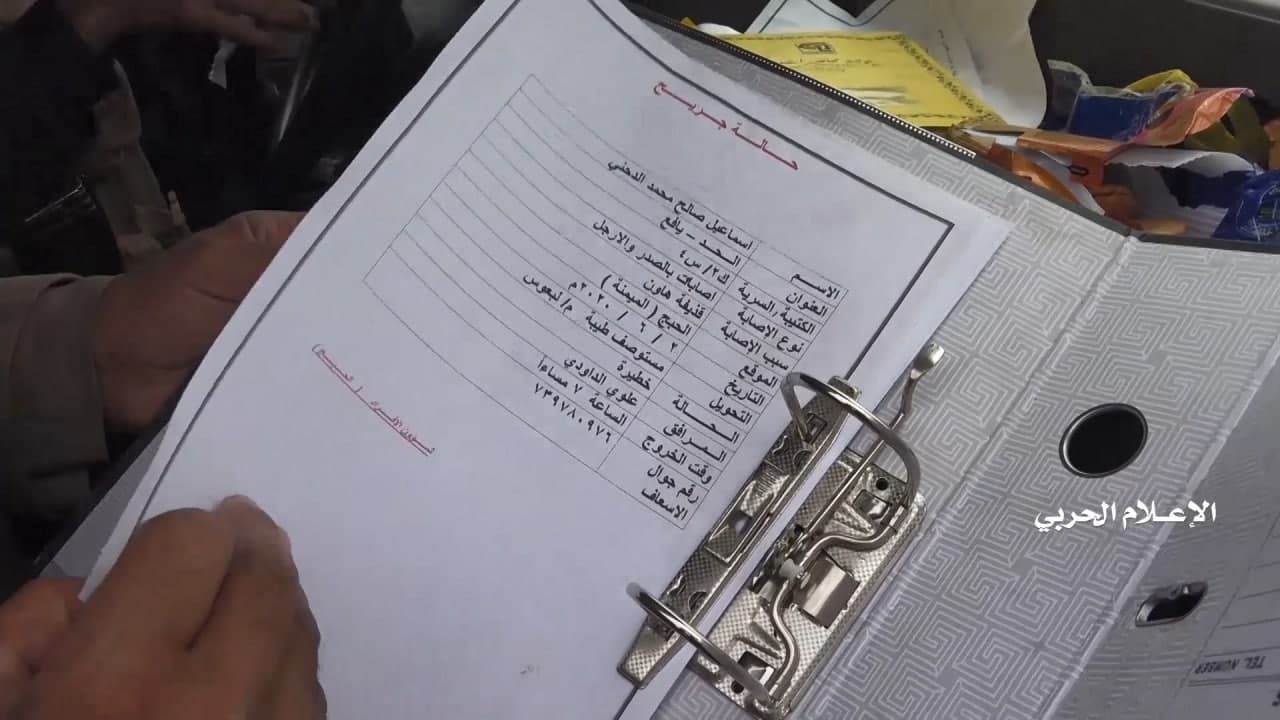 حالة جريح
الاسم اسماعيل صالح محمد الدحني
العنوان الحد – يافع
الكتيبة/السرية ك٢/ س٤
نوع الإصابة اصابات بالصدر والارجل
سبب الإصابة قذيفة هاون
الموقع الحيج (الميمنة)
التاريخ ٢ / ٦ / ٢٠٢٠م
التحويل مستوصف طيبة م/لبعوس
الحالة خطيرة
المرافق علوي الداودي
وقت الخروج الساعة ٧ مساءاً
رقم جوال ٧٣٩٧٨٠٩٧٦
الاسعاف
شؤون الافراد / الحيج)
الإعلام الحربي
TEL. NUMBER